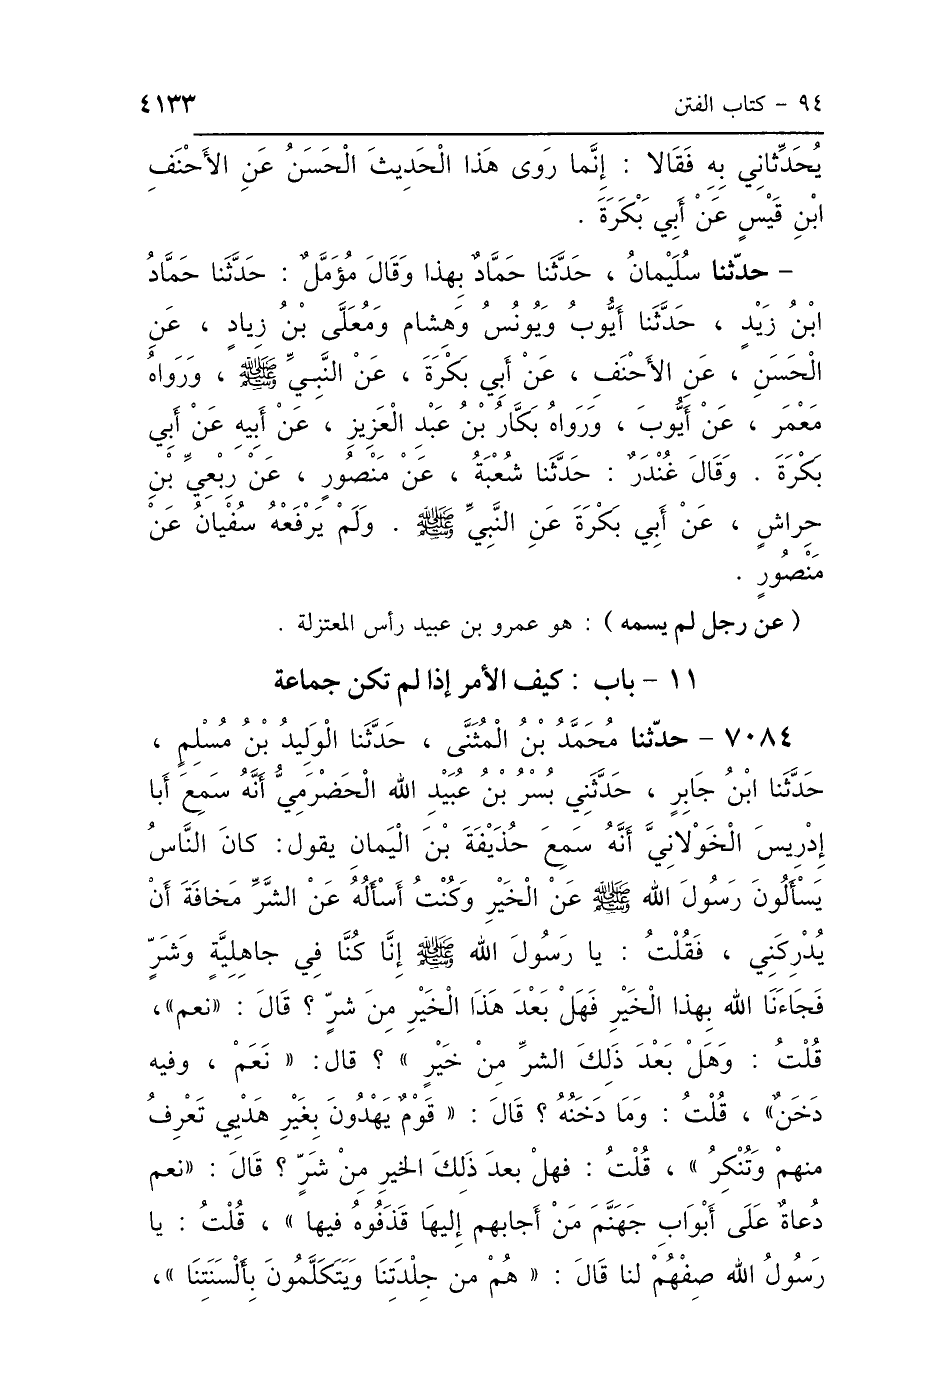 ٩٤ - كتاب الفتن ٤١٣٣
يُحَدِّثاني بِهِ فَقَالا : إنَّما رَوى هَذا الْحَديثَ الْحَسَنُ عَنِ الأَحْنَفِ
ابْنِ قَيْسٍ عَنْ أَبِي بَكْرَةَ .
- حدّثنا سُلَيْمانُ ، حَدَّثَنا حَمَّادٌ بِهذا وَقَالَ مُؤَمَّلٌ : حَدَّثَنا حَمَّادُ
ابْنُ زَيْدٍ ، حَدَّثَنا أَيُّوبُ وَيُونُسُ وَهِشام وَمُعَلَّى بْنُ زِيادٍ ، عَنِ
الْحَسَنِ ، عَنِ الأَحْنَفِ ، عَنْ أَبِي بَكْرَةَ ، عَنْ النَّبِيِّ ﷺ ، وَرَواهُ
مَعْمَر ، عَنْ أَيُّوبَ ، وَرَوَاهُ بَكَّارُ بْنُ عَبْدِ الْعَزِيزِ ، عَنْ أَبِيهِ عَنْ أَبي
بَكْرَةَ . وَقَالَ غُنْدَرٌ : حَدَّثَنا شُعْبَةُ ، عَنْ مَنْصُورٍ ، عَنْ رِبْعِيِّ بْنِ
حِراشٍ ، عَنْ أَبي بَكْرَةَ عَنِ النَّبِيِّ ﷺ . وَلَمْ يَرْفَعْهُ سُفْيانُ عَنْ
مَنْصُورٍ .
( عن رجل لم يسمه ) : هو عمرو بن عبيد رأس المعتزلة .
١١ - باب : كيف الأمر إذا لم تكن جماعة
٧٠٨٤ - حدّثنا مُحَمَّدُ بْنُ الْمُثَنَّى ، حَدَّثَنا الْوَلِيدُ بْنُ مُسْلِمٍ ،
حَدَّثَنا ابْنُ جَابِرٍ ، حَدَّثَنِي بُسْرُ بْنُ عُبَيْدِ الله الْحَضْرَمِيُّ أَنَّهُ سَمِعَ أَبا
إدْرِيسَ الْخَوْلانِيَّ أَنَّهُ سَمِعَ حُذَيْفَةَ بْنَ الْيَمانِ يقول: كانَ النَّاسُ
يَسْأَلُونَ رَسُولَ الله ﷺ عَنْ الْخَيْرِ وَكُنْتُ أَسْأَلُهُ عَنْ الشَّرِّ مَخافَةَ أَنْ
يُدْرِكَنِي ، فَقُلْتُ : يا رَسُولَ الله ﷺ إنَّا كُنَّا فِي جاهِلِيَّةٍ وَشَرٍّ
فَجَاءَنَا الله بِهذا الْخَيْرِ فَهَلْ بَعْدَ هَذَا الْخَيْرِ مِنَ شرٍّ ؟ قَالَ : «نعم»،
قُلْتُ : وَهَلْ بَعْدَ ذَلِكَ الشرِّ مِنْ خَيْرٍ » ؟ قال: « نَعَمْ ، وفيه
دَخَنٌ» ، قُلْتُ : وَمَا دَخَنُهُ ؟ قَالَ : « قَوْمٌ يَهْدُونَ بِغَيْرِ هَدْيِي تَعْرِفُ
منهمْ وَتُنْكِرُ » ، قُلْتُ : فهلْ بعدَ ذَلِكَ الخيرِ مِنْ شَرٍّ ؟ قَالَ : «نعم
دُعاةٌ عَلَى أَبْوَابِ جَهَنَّمَ مَنْ أجابهم إليهَا قَذَفُوهُ فيها » ، قُلْتُ : يا
رَسُولُ الله صِفْهُمْ لنا قَالَ : « هُمْ من جِلْدَتِنَا وَيَتَكَلَّمُونَ بِأَلْسَنَتِنَا »،